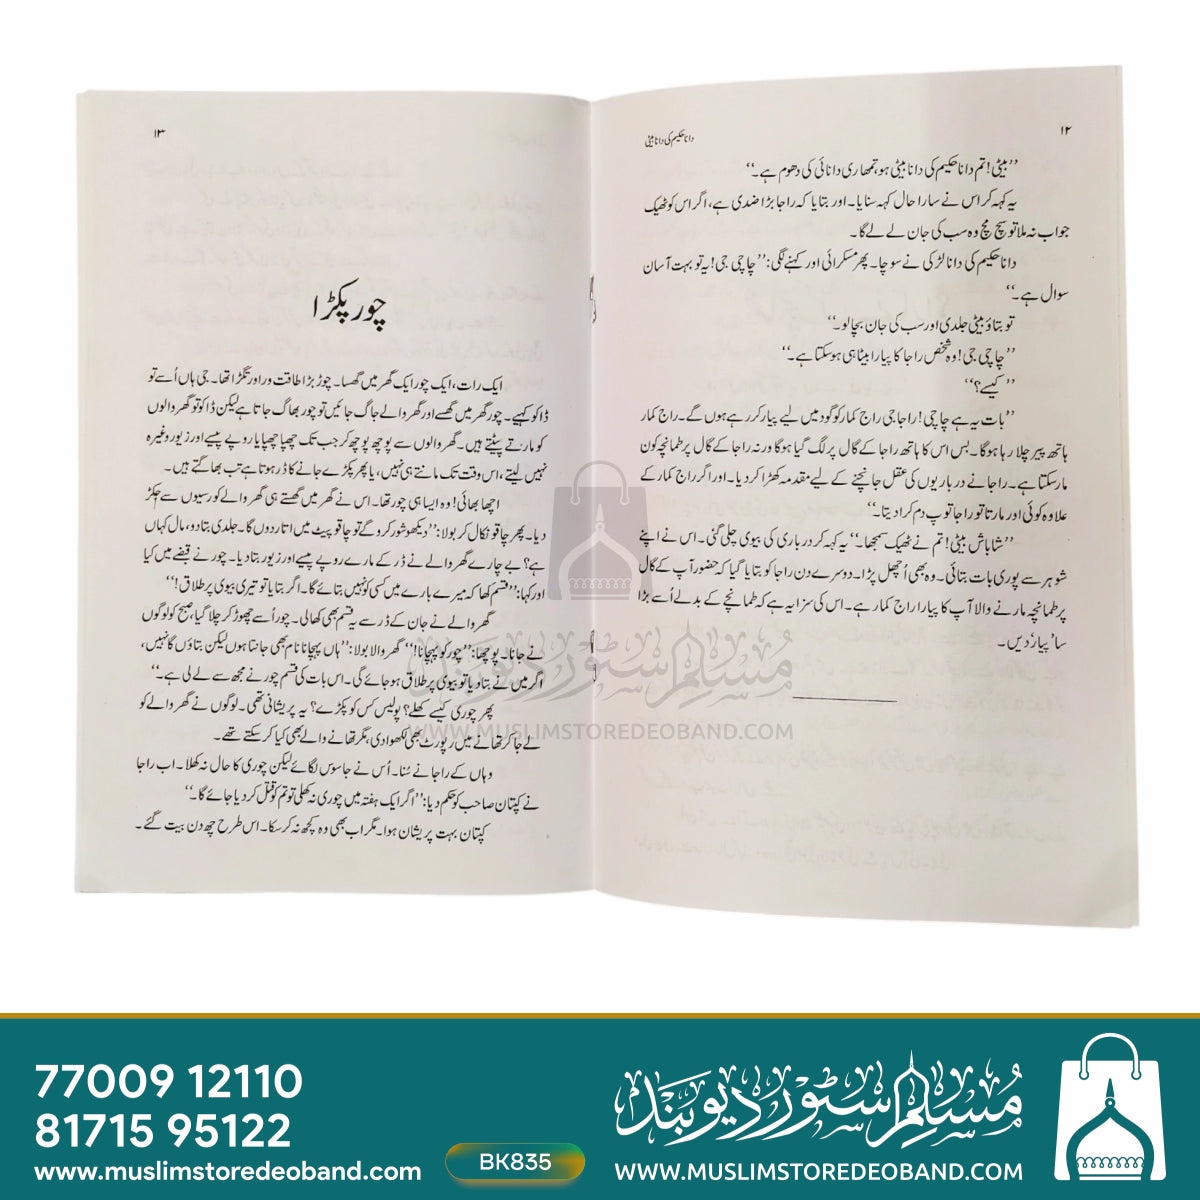 ۱۲
دانا حکیم کی دانا بیٹی
’’بیٹی! تم دانا حکیم کی دانا بیٹی ہو، تمھاری دانائی کی دھوم ہے۔‘‘
یہ کہہ کر اس نے سارا حال کہہ سنایا۔ اور بتایا کہ راجا بڑا ضدی ہے، اگر اس کو ٹھیک
جواب نہ ملا تو سچ مچ وہ سب کی جان لے لے گا۔
دانا حکیم کی دانا لڑکی نے سوچا۔ پھر مسکرائی اور کہنے لگی: ’’چاچی جی! یہ تو بہت آسان
سوال ہے۔‘‘
تو بتاؤ بیٹی جلدی اور سب کی جان بچالو۔‘‘
’’چاچی جی! وہ شخص راجا کا پیارا بیٹا ہی ہوسکتا ہے۔‘‘
’’کیسے؟‘‘
’’بات یہ ہے چاچی! راجا جی راج کمار کو گود میں لیے پیار کر رہے ہوں گے۔ راج کمار
ہاتھ پیر چلا رہا ہوگا۔ بس اس کا ہاتھ راجا کے گال پر لگ گیا ہوگا ورنہ راجا کے گال پر طمانچہ کون
مار سکتا ہے۔ راجا نے درباریوں کی عقل جانچنے کے لیے مقدمہ کھڑا کر دیا۔ اور اگر راج کمار کے
علاوہ کوئی اور مارتا تو راجا توپ دم کرا دیتا۔‘‘
’’شاباش بیٹی! تم نے ٹھیک سمجھا۔‘‘ یہ کہہ کر درباری کی بیوی چلی گئی۔ اس نے اپنے
شوہر سے پوری بات بتائی۔ وہ بھی اُچھل پڑا۔ دوسرے دن راجا کو بتایا گیا کہ حضور آپ کے گال
پر طمانچہ مارنے والا آپ کا پیارا راج کمار ہے۔ اس کی سزا یہ ہے کہ طمانچے کے بدلے اُسے بڑا
سا ’پیار‘ دیں۔
۱۳
چور پکڑا
ایک رات، ایک چور ایک گھر میں گھسا۔ چوڑ بڑا طاقت ور اور تگڑا تھا۔ جی ہاں اُسے تو
ڈاکو کہیے۔ چور گھر میں گھسے اور گھر والے جاگ جائیں تو چور بھاگ جاتا ہے لیکن ڈاکو تو گھر والوں
کو مارتے پیٹتے ہیں۔ گھر والوں سے پوچھ پوچھ کر جب تک چھپا چھپایا روپے پیسے اور زیور وغیرہ
نہیں لیتے، اس وقت تک مانتے ہی نہیں، یا پھر پکڑے جانے کا ڈر ہوتا ہے تب بھاگتے ہیں۔
اچھا بھائی! وہ ایسا ہی چور تھا۔ اس نے گھر میں گھستے ہی گھر والے کو رسیوں سے جکڑ
دیا۔ پھر چاقو نکال کر بولا: ’’دیکھو شور کرو گے تو چاقو پیٹ میں اتار دوں گا۔ جلدی بتا دو، مال کہاں
ہے؟ بے چارے گھر والے نے ڈر کے مارے روپے پیسے اور زیور بتا دیا۔ چور نے قبضے میں کیا
اور کہا: ’’قسم کھا کہ میرے بارے میں کسی کو نہیں بتائے گا۔ اگر بتایا تو تیری بیوی پر طلاق!‘‘
گھر والے نے جان کے ڈر سے یہ قسم بھی کھالی۔ چور اُسے چھوڑ کر چلا گیا، صبح کو لوگوں
نے جانا۔ پوچھا: ’’چور کو پہچانا!‘‘ گھر والا بولا: ’’ہاں پہچانا نام بھی جانتا ہوں لیکن بتاؤں گا نہیں،
اگر میں نے بتا دیا تو بیوی پر طلاق ہو جائے گی۔ اس بات کی قسم چور نے مجھ سے لے لی ہے۔‘‘
پھر چوری کیسے کھلے؟ پولیس کس کو پکڑے؟ یہ پریشانی تھی۔ لوگوں نے گھر والے کو
لے جا کر تھانے میں رپورٹ بھی لکھوا دی، مگر تھانے والے بھی کیا کر سکتے تھے۔
وہاں کے راجا نے سُنا۔ اُس نے جاسوس لگائے لیکن چوری کا حال نہ کھلا۔ اب راجا
نے کپتان صاحب کو حکم دیا: ’’اگر ایک ہفتہ میں چوری نہ کھلی تو تم کو قتل کر دیا جائے گا۔‘‘
کپتان بہت پریشان ہوا۔ مگر اب بھی وہ کچھ نہ کر سکا۔ اس طرح چھ دن بیت گئے۔
مسلم سٹور دیوبند
WWW.MUSLIMSTOREDEOBAND.COM
77009 12110
81715 95122
www.muslimstoredeoband.com
BK835
مسلم سٹور دیوبند
WWW.MUSLIMSTOREDEOBAND.COM